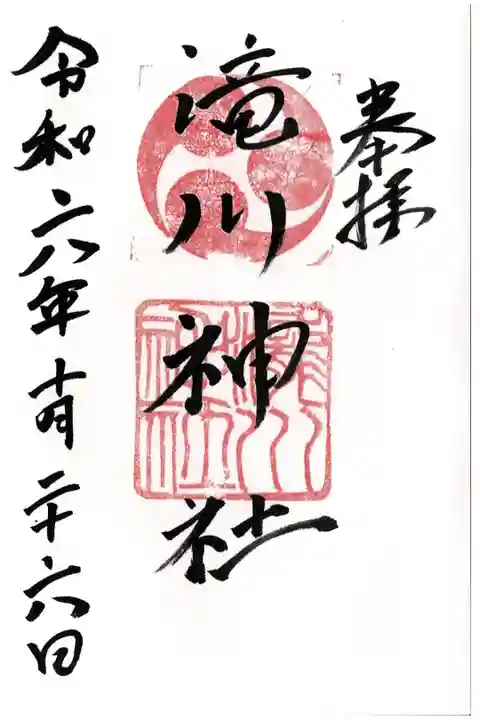 奉拝
滝川神社
令和六年十月二十六日